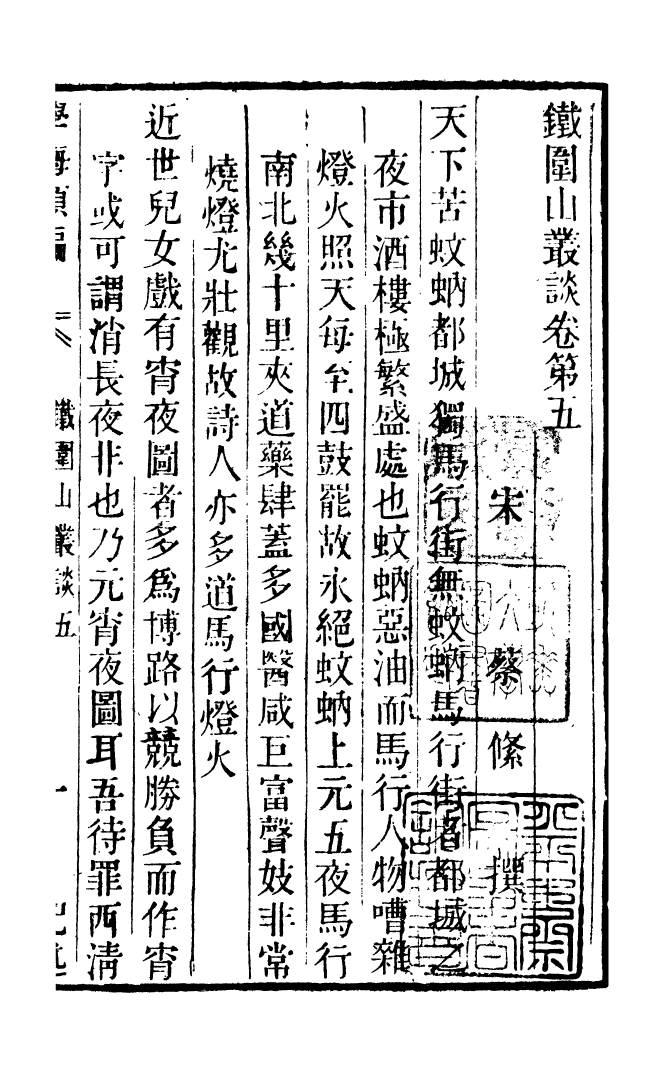 鐵圍山叢談卷第五
宋 蔡絛 撰
天下苦蚊蚋都城獨馬行街無蚊蚋馬行街者都城之
夜市酒樓極繁盛處也蚊蚋惡油而馬行人物嘈雜
燈火照天每至四鼓罷故永絕蚊蚋上元五夜馬行
南北幾十里夾道藥肆蓋多國醫咸巨富聲妓非常
燒燈尤壯觀故詩人亦多道馬行燈火
近世兒女戲有宵夜圖者多爲博路以競勝負而作宵
字或可謂消長夜非也乃元宵夜圖耳吾待罪西淸
學海類編 鐵圍山叢談五 一